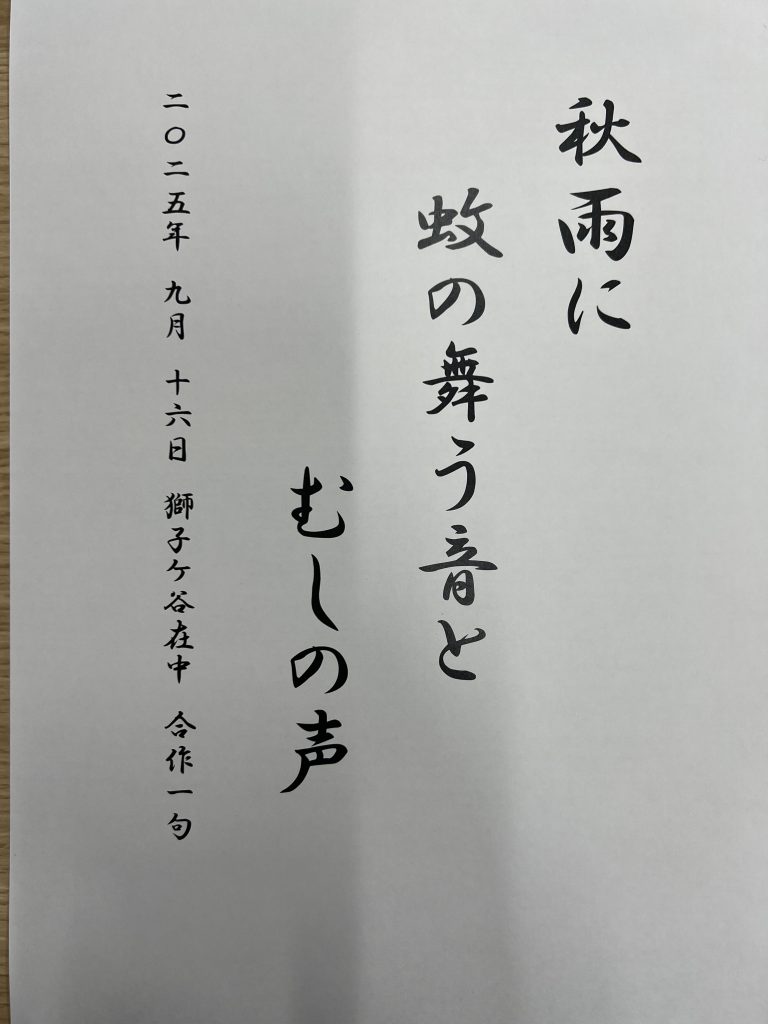 秋雨に
蚊の舞う音と
むしの声
二〇二五年 九月 十六日 獅子ケ谷在中 合作一句